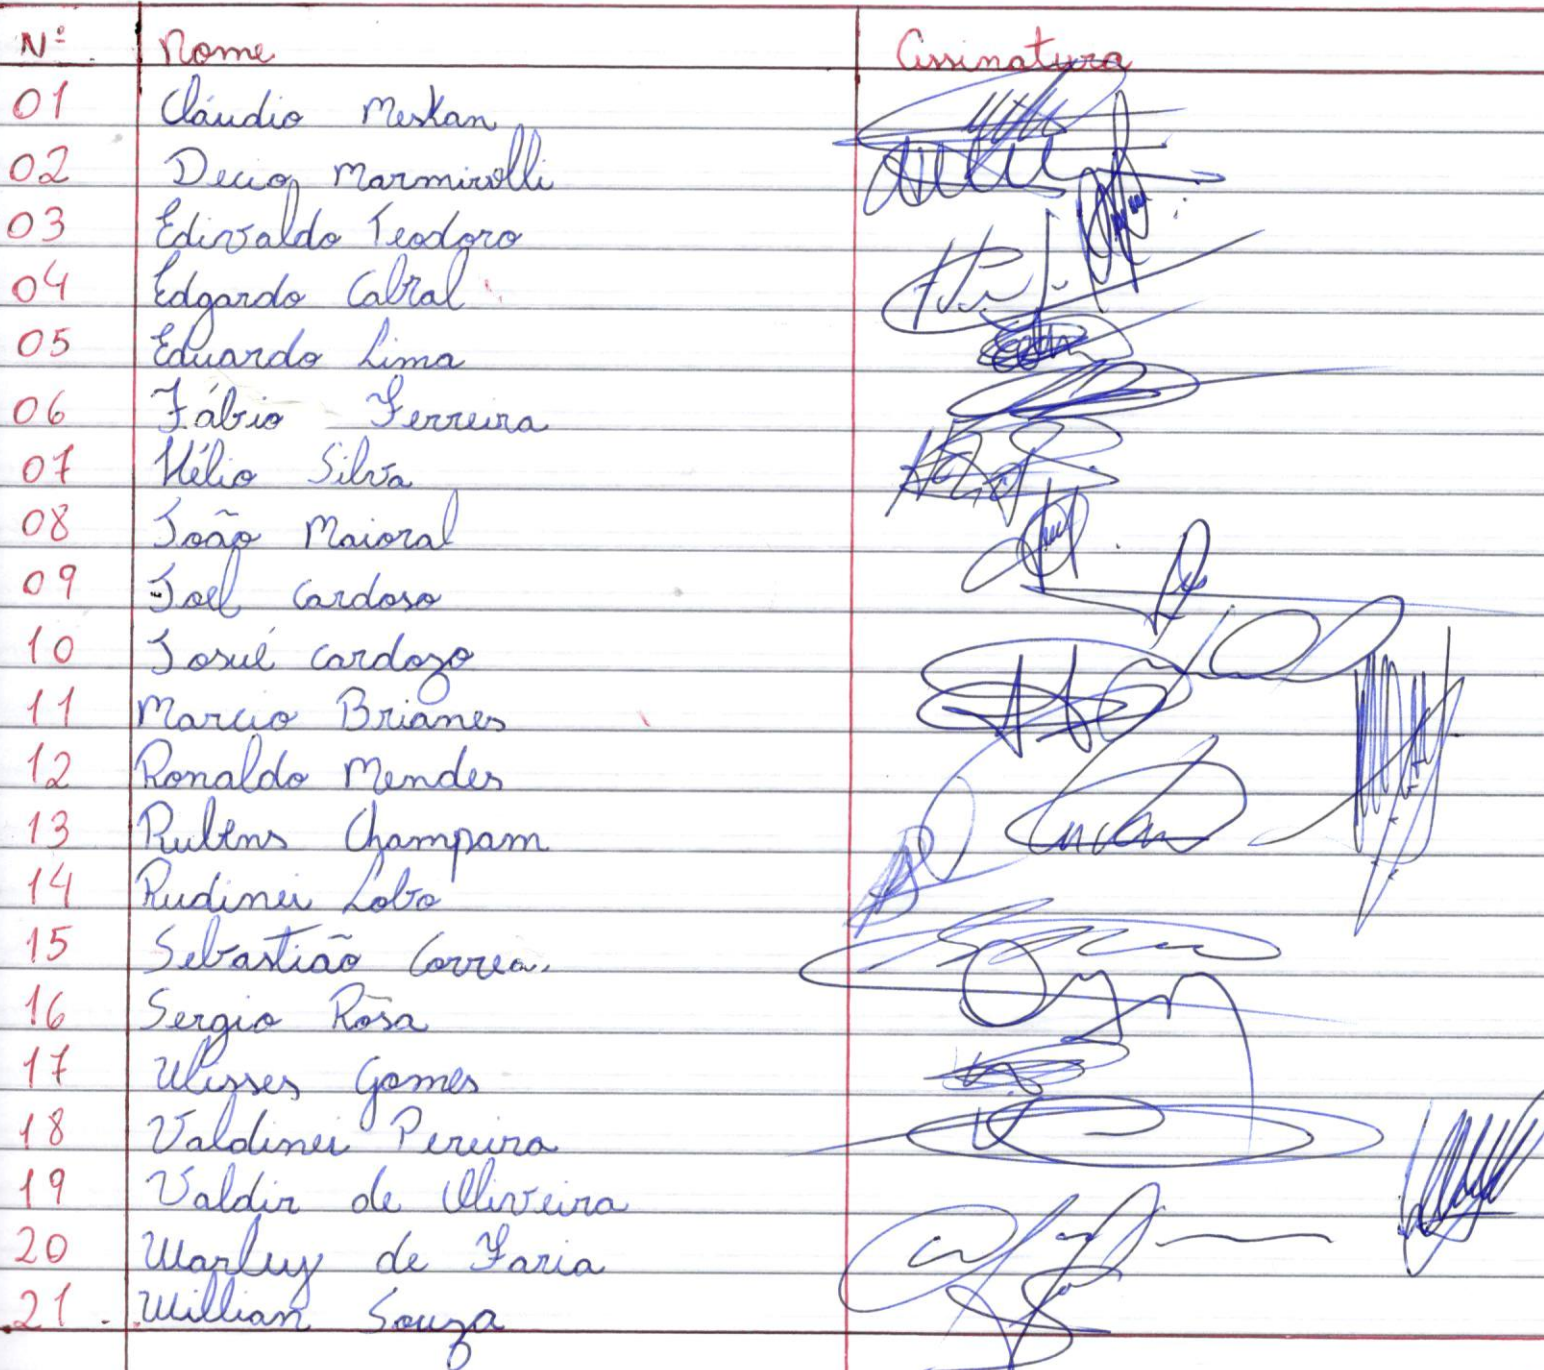 Nº Nome Assinatura
01 Cláudio Meskan
02 Decio Marmirolli
03 Edivaldo Teodoro
04 Edgardo Cabral
05 Eduardo Lima
06 Fábio Ferreira
07 Hélio Silva
08 João Maioral
09 Joel Cardoso
10 Josué Cardozo
11 Marcio Brianes
12 Ronaldo Mendes
13 Rubens Champam
14 Rudinei Lobo
15 Sebastião Correa.
16 Sergio Rosa
17 Ulisses Gomes
18 Valdinei Pereira
19 Valdir de Oliveira
20 Warley de Faria
21 Willian Souza